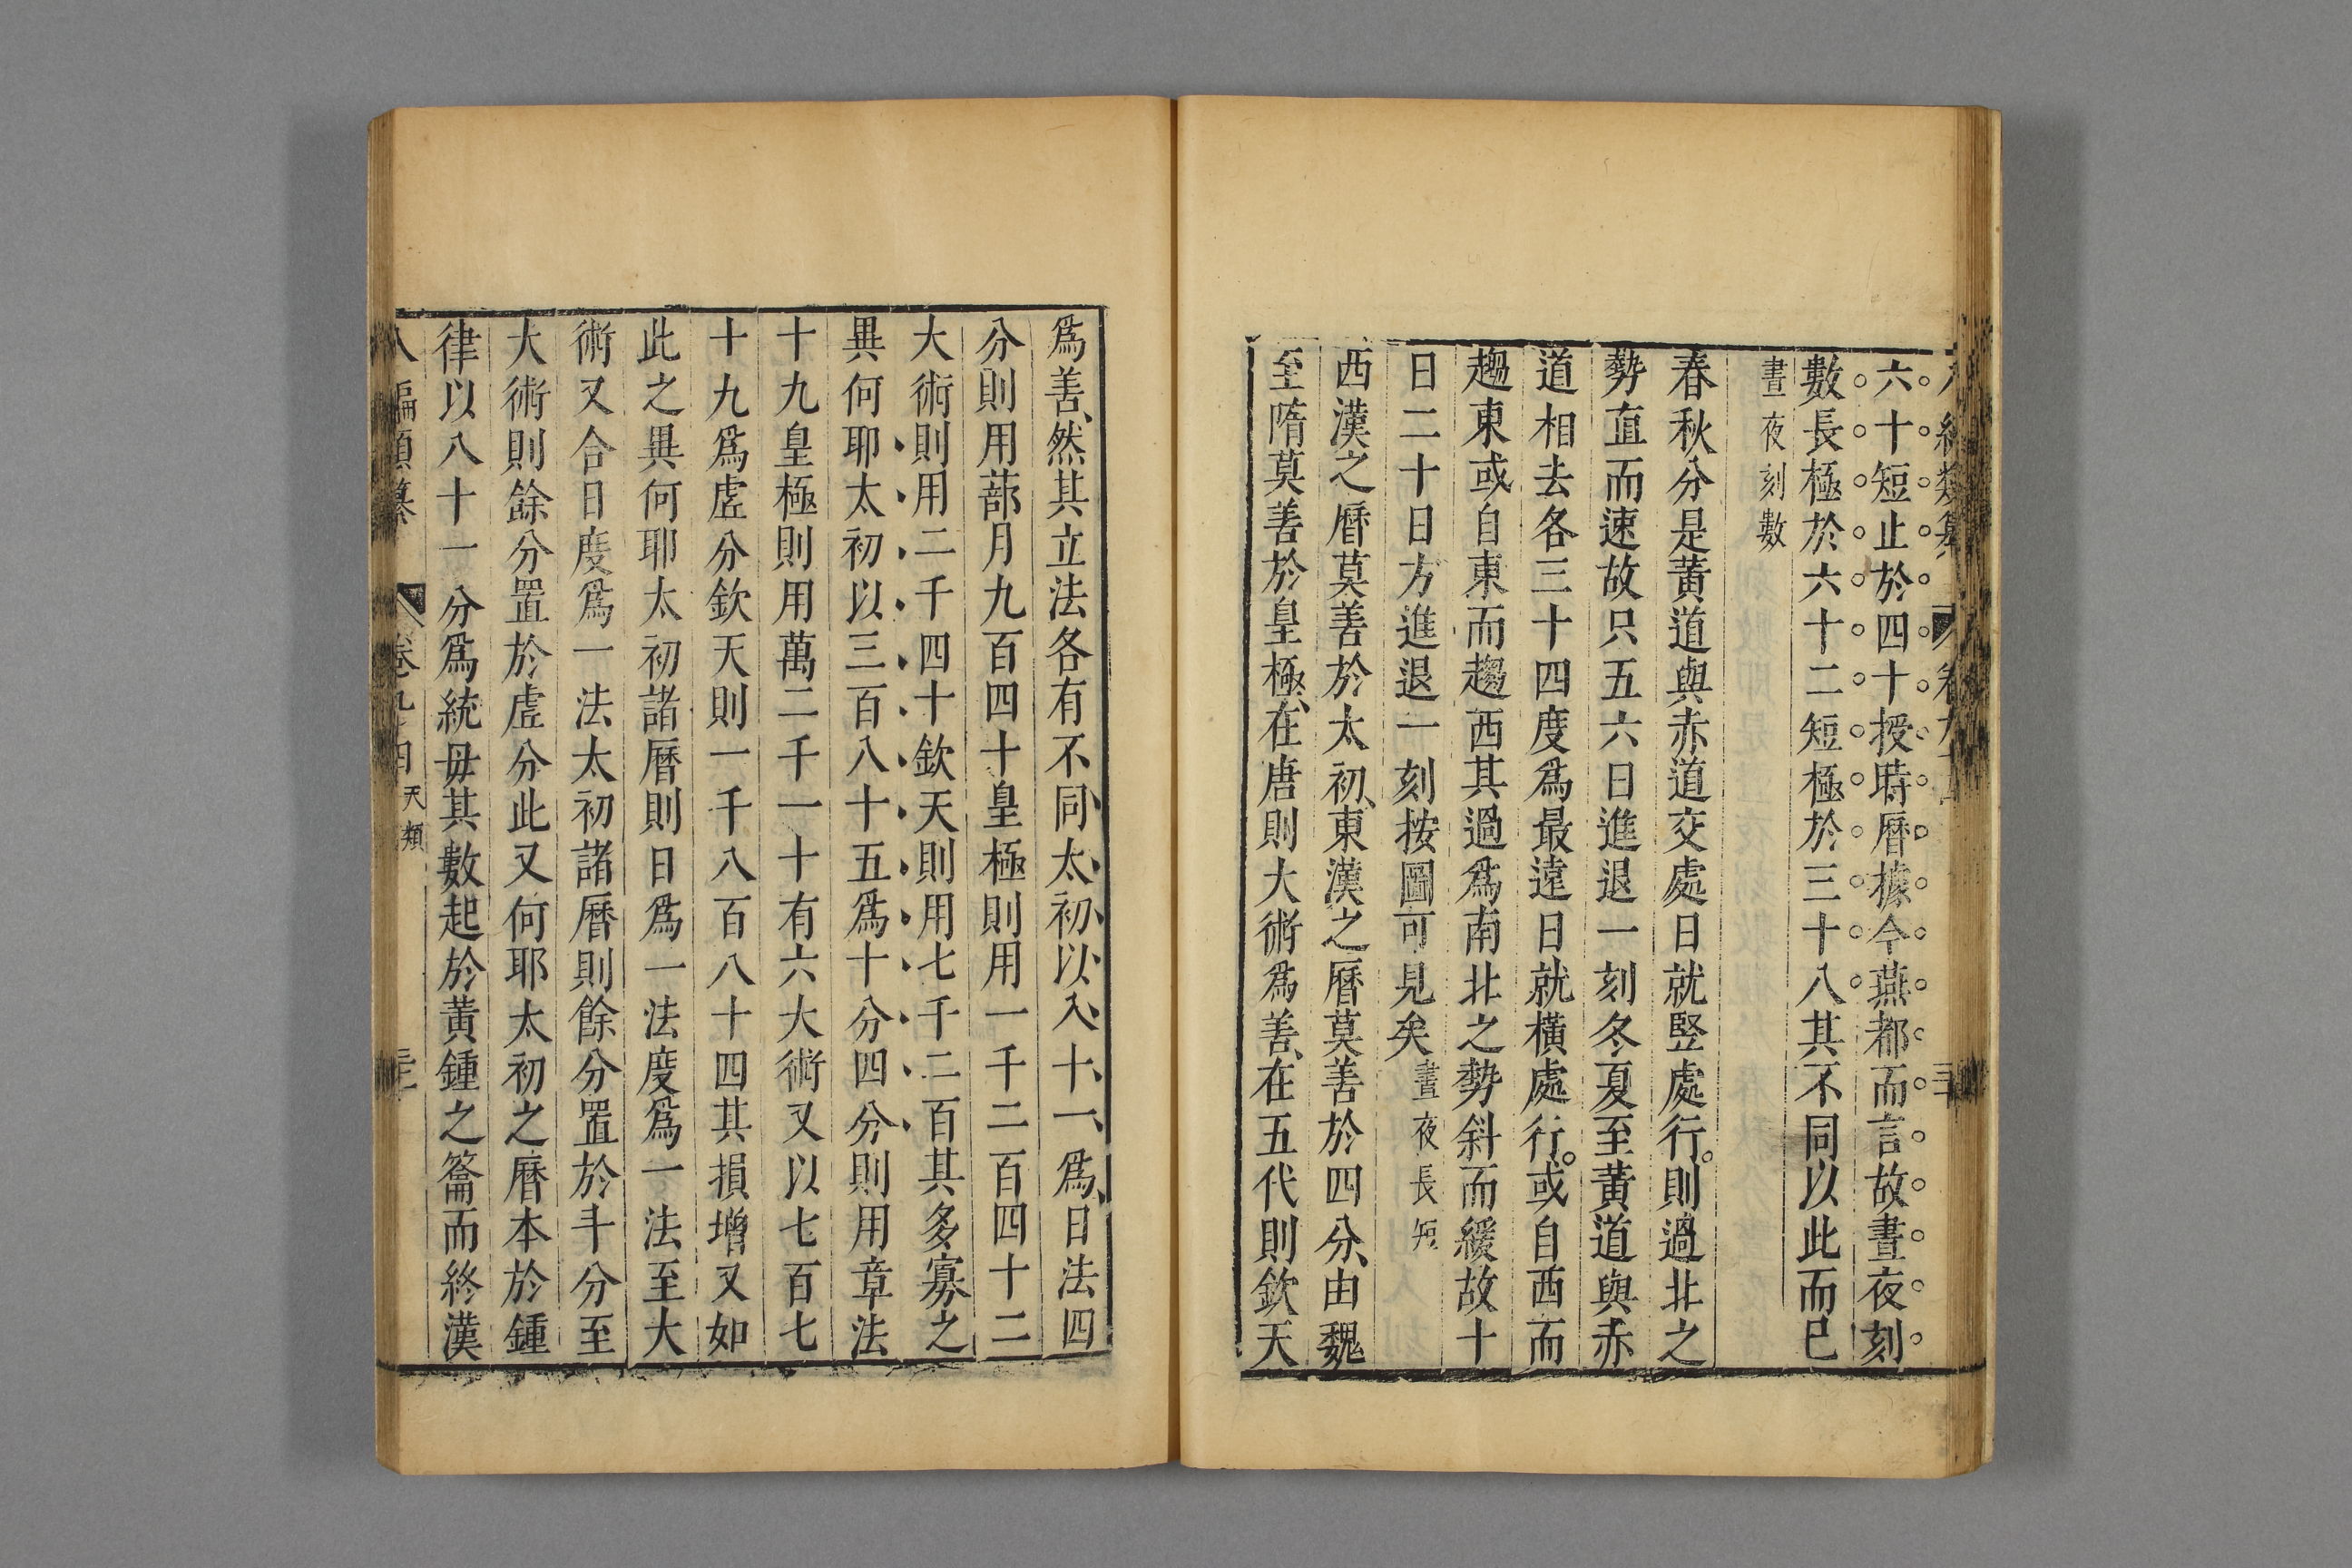 六十短止於四十授時曆據今燕都而言故晝夜刻
數長極於六十二短極於三十八其不同以此而已
晝夜刻數
春秋分是黃道與赤道交處日就竪處行則過北之
勢直而速故只五六日進退一刻冬夏至黃道與赤
道相去各三十四度爲最遠日就橫處行或自西而
趨東或自東而趨西其過爲南北之勢斜而緩故十
日二十日方進退一刻按圖可見矣晝夜長短
西漢之曆莫善於太初東漢之曆莫善於四分由魏
至隋莫善於皇極在唐則大術爲善在五代則欽天
爲善然其立法各有不同太初以八十一爲日法四
分則用蔀月九百四十皇極則用一千二百四十二
大術則用二千四十欽天則用七千二百其多寡之
異何耶太初以三百八十五爲十分四分則用章法
十九皇極則用萬二千一十有六大術又以七百七
十九爲虛分欽天則一千八百八十四其損增又如
此之異何耶太初諸曆則日爲一法度爲一法至大
術又合日度爲一法太初諸曆則餘分置於斗分至
大術則餘分置於虛分此又何耶太初之曆本於鍾
律以八十一分爲統毋其數起於黃鍾之籥而終漢
八編類纂 卷九十四 天類